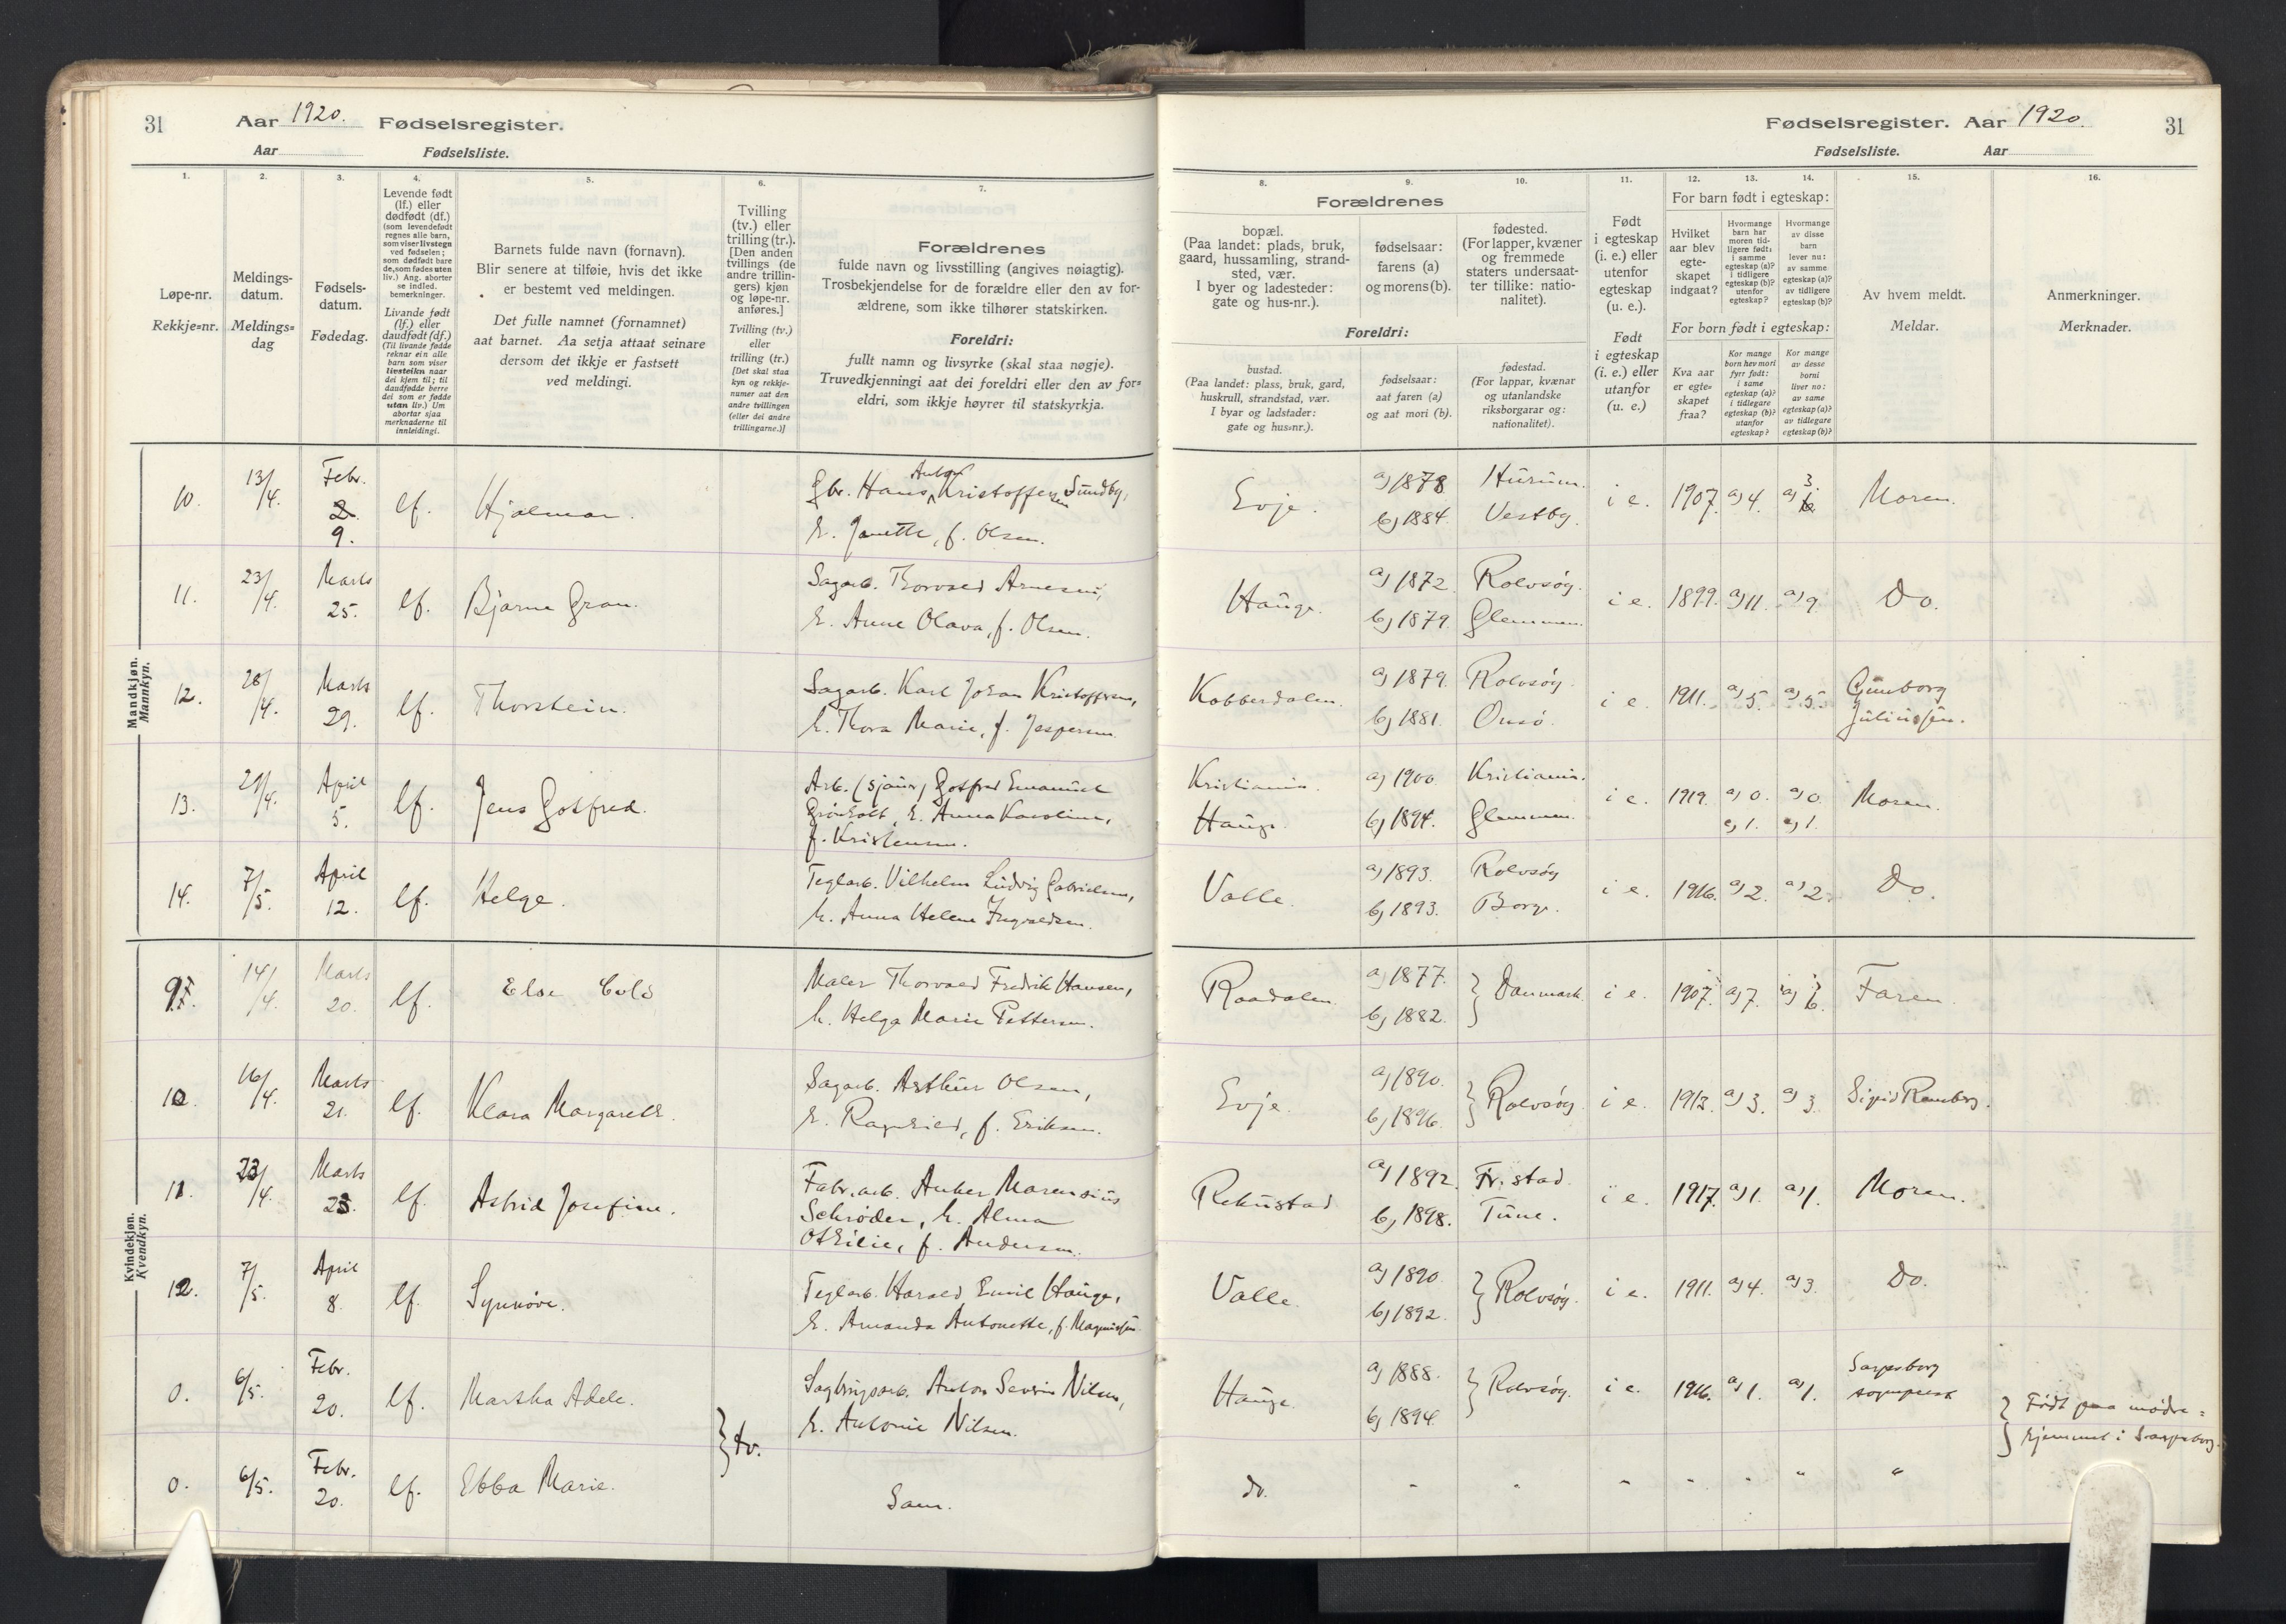 31
Aar 1920. Fødselsregister.
Aar Fødselsliste.
Fødselsregister. Aar 1920.
31
Fødselsliste. Aar
1.
Løpe-nr.
Rekkje=nr.
2.
Meldings-
datum.
Meldings=
dag
3.
Fødsels-
datum.
Fødedag.
4.
Levende født
(lf.) eller
dødfødt (df.)
(som levendefødt
regnes alle barn,
som viser livstegn
ved fødselen;
som dødfødt bare
de, som fødes uten
liv.) Ang. aborter
se indled.
bemerkninger.
Livande født
(lf.) eller
daudfødt (df.)
(Til livande fødde
reknar ein alle
barn som viser
livsteikn naar
dei kjem til; til
daudfødde berre
dei som er fødde
utan liv.) Um
abortar sjaa
merknaderne til
innleidingi.
5.
Barnets fulde navn (fornavn).
Blir senere at tilføie, hvis det ikke
er bestemt ved meldingen.
Det fulle namnet (fornamnet)
aat barnet. Aa setja attaat seinare
dersom det ikkje er fastsett
ved meldingi.
6.
Tvilling
(tv.) eller
trilling (tr.).
[Den anden
tvillings (de
andre trillin-
gers) kjøn
og løpe-nr.
anføres.]
Tvilling (tv.)
eller
trilling (tr.)
[Det skal staa
kyn og rekkje-
numer aat den
andre tvillingen
(eller dei andre
trillingarne.)]
7.
Forældrenes
fulde navn og livsstilling (angives nøiagtig).
Trosbekjendelse for de forældre eller den av for-
ældrene, som ikke tilhører statskirken.
Foreldri:
fullt namn og livsyrke (skal staa nøgje).
Truvedkjenningi aat dei foreldri eller den av for=
eldri, som ikkje høyrer til statskyrkja.
Forældrenes
8.
bopæl.
(Paa landet: plads, bruk,
gaard, hussamling, strand-
sted, vær.
I byer og ladesteder:
gate og hus-nr.).
9.
fødselsaar:
farens (a)
og morens (b).
10.
fødested.
(For lapper, kvæner
og fremmede
staters undersaat-
ter tillike: natio-
nalitet).
Foreldri:
bustad.
(Paa landet: plass, bruk, gard,
huskrull, strandstad, vær.
I byar og ladstader:
gate og hus=nr.).
fødselsaar:
aat faren (a)
og aat mori (b).
fødestad.
(For lappar, kvænar
og utanlandske
riksborgarar og:
nationalitet).
11.
Født
i egteskap
(i. e.) eller
utenfor
egteskap
(u. e.).
Født
i egteskap
(i. e.) eller
utanfor
(u. e.)
For barn født i egteskap:
12.
Hvilket
aar blev
egte-
skapet
indgaat?
13.
Hvormange
barn har
moren tid-
ligere født:
i samme
egteskap (a)?
i tidligere
egteskap (b)?
utenfor
egteskap?
14.
Hvormange
av disse
barn
lever nu:
av samme
egteskap (a)?
av tidligere
egteskap (b)?
For born født i egteskap:
Kva aar
er egte=
skapet
fraa?
Kor mange
born hev mori
fyrr født:
i same
egteskap (a)?
i tidlegare
egteskap (b)?
utanfor
egteskap?
Kor mange
av desse
borni
liver no:
av same
egteskap (a)?
av tidlegare
egteskap (b)?
15.
Av hvem meldt.
Meldar.
16.
Anmerkninger.
Merknader.
Mandkjøn.
Mannkyn.
10. 13/4. Febr. 2. 9. lf. Hjalmar.
Gbr. Hans Anton Kristoffersen Sundby,
h. Janette, f. Olsen.
Evje. a) 1878 b) 1884. Hurum. Vestby. i e. 1907. a) 4. a) 3. Moren.
11. 23/4. Marts 25. lf. Bjarne Gran.
Sagarb. Thorvald Arnesen,
h. Anne Olava, f. Olsen.
Hauge. a) 1872. b) 1879. Rolvsøy. Glemmen. i e. 1899. a) 11. a) 9. Do.
12. 28/4. Marts 29. lf. Thorstein.
Sagarb. Karl Johan Kristoffersen,
h. Thora Marie, f. Jespersen.
Kobberdalen. a) 1879. b) 1881. Rolvsøy. Onsø. i e. 1911. a) 5. a) 5. Gunborg Juliussen.
13. 29/4. April 5. lf. Jens Gotfred.
Arb. (sjauer) Gotfred Emanuel
Grønholt, h. Anna Karoline,
f. Kristensen.
Kristiania. Hauge. a) 1900. b) 1894. Kristiania. Glemmen. i e. 1919. a) 0. c) 1. a) 0. c) 1. Moren.
14. 7/5. April 12. lf. Helge.
Teglarb. Vilhelm Ludvig Gabrielsen,
h. Anna Helene Ingvaldsen.
Valle. a) 1893. b) 1893. Rolvsøy Borge. i e. 1916. a) 2. a) 2. Do.
Kvindekjøn.
Kvendkyn.
9. 14/4. Marts 20. lf. Else
Maler Thorvald Fredrik Hansen,
h. Helga Marie Pettersen.
Raadalen. a) 1877. b) 1882. Danmark. i e. 1907. a) 7. a) 6. Faren.
10. 16/4. Marts 21. lf. Klara Margarete.
Sagarb. Arthur Olsen,
h. Ragnhild, f. Eriksen.
Evje. a) 1890. b) 1896. Rolvsøy. i e. 1913. a) 3. a) 3. Sigrid Ramberg.
11. 23/4. Marts 25. lf. Astrid Josefine.
Fabr.arb. Anker Marensius
Schrøder, h. Alma
Othilie, f. Andersen.
Rekustad a) 1892. b) 1898. Fr.stad. Tune. i e. 1917. a) 1. a) 1. Moren.
12. 7/5. April 8. lf. Synnøve.
Teglarb. Harald Emil Hauge,
h. Amanda Antonette, f. Magnussen.
Valle. a) 1890. b) 1892. Rolvsøy. i e. 1911. a) 4. a) 3. Do.
0. 6/5. Febr. 20. lf. Martha Adele. tv.
Sagbrugsarb. Anton Severin Nilsen,
h. Antonie Nilsen.
Hauge. a) 1888. b) 1894. Rolvsøy. i e. 1916. a) 1. a) 1. Sarpsborg sogneprest
Født paa mødre=
hjemmet i Sarpsborg.
0. 6/5. Febr. 20. lf. Ebba Marie.
Sam.
do. - - - - - " "